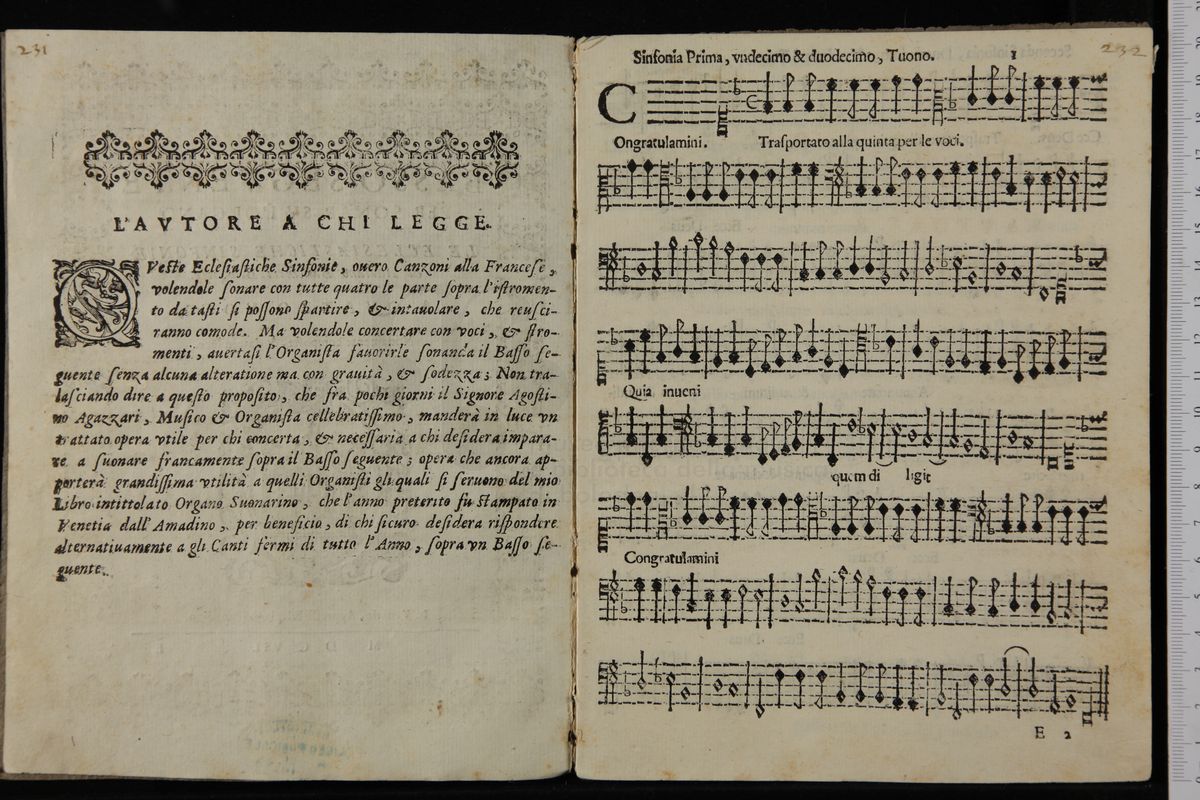 231
L'AVTORE A CHI LEGGE.
QVeste Eclesiastiche Sinfonie, overo Canzoni alla Francese,
volendole sonare con tutte quatro le parte sopra l'istromen-
to da tasti si possono spartire, & intauolare, che reusci-
ranno comode. Ma volendole concertare con voci, & stro-
menti, auertasi l'Organista fauorirle sonanda il Basso se-
guente senza alcuna alteratione ma con grauità, & sodezza; Non tra-
lasciando dire a questo proposito, che fra pochi giorni il Signore Agosti-
no Agazzari, Musico & Organista cellebratissimo, manderà in luce vn
trattato opera vtile per chi concerta, & necessaria a chi desidera impara-
re a suonare francamente sopra il Basso seguente; opera che ancora ap-
porterà grandissima vtilità a quelli Organisti gli quali si seruono del mio
Libro intittolato Organo Suonarino, che l'anno preterito fu stampato in
Venetia dall'Amadino, per beneficio, di chi sicuro desidera rispondere
alternatiuamente a gli Canti fermi di tutto l'Anno, sopra vn Basso se-
guente.
232
Sinfonia Prima, vndecimo & duodecimo, Tuono. 1
COngratulamini. Trasportato alla quinta per le voci.
Quia inueni
quem di ligit
Congratulamini
E 2